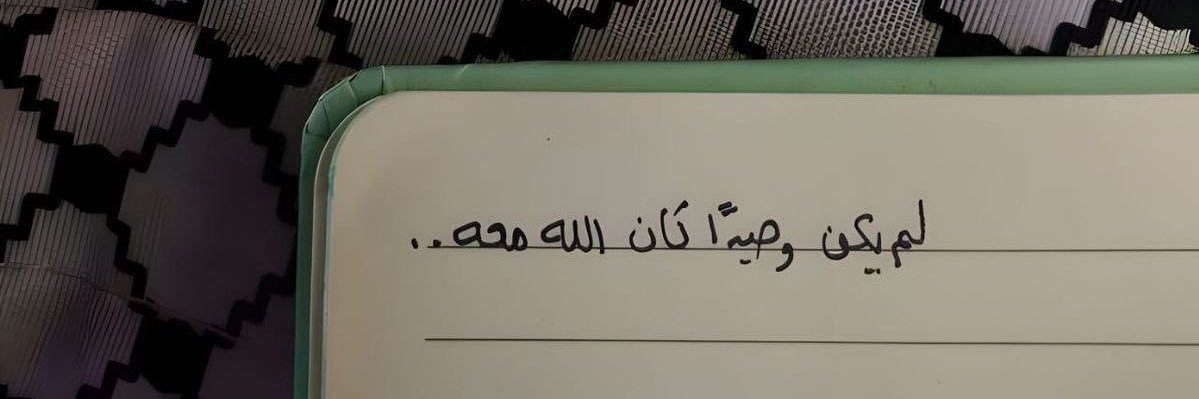 لم يكن وحيدًا كان الله معه..